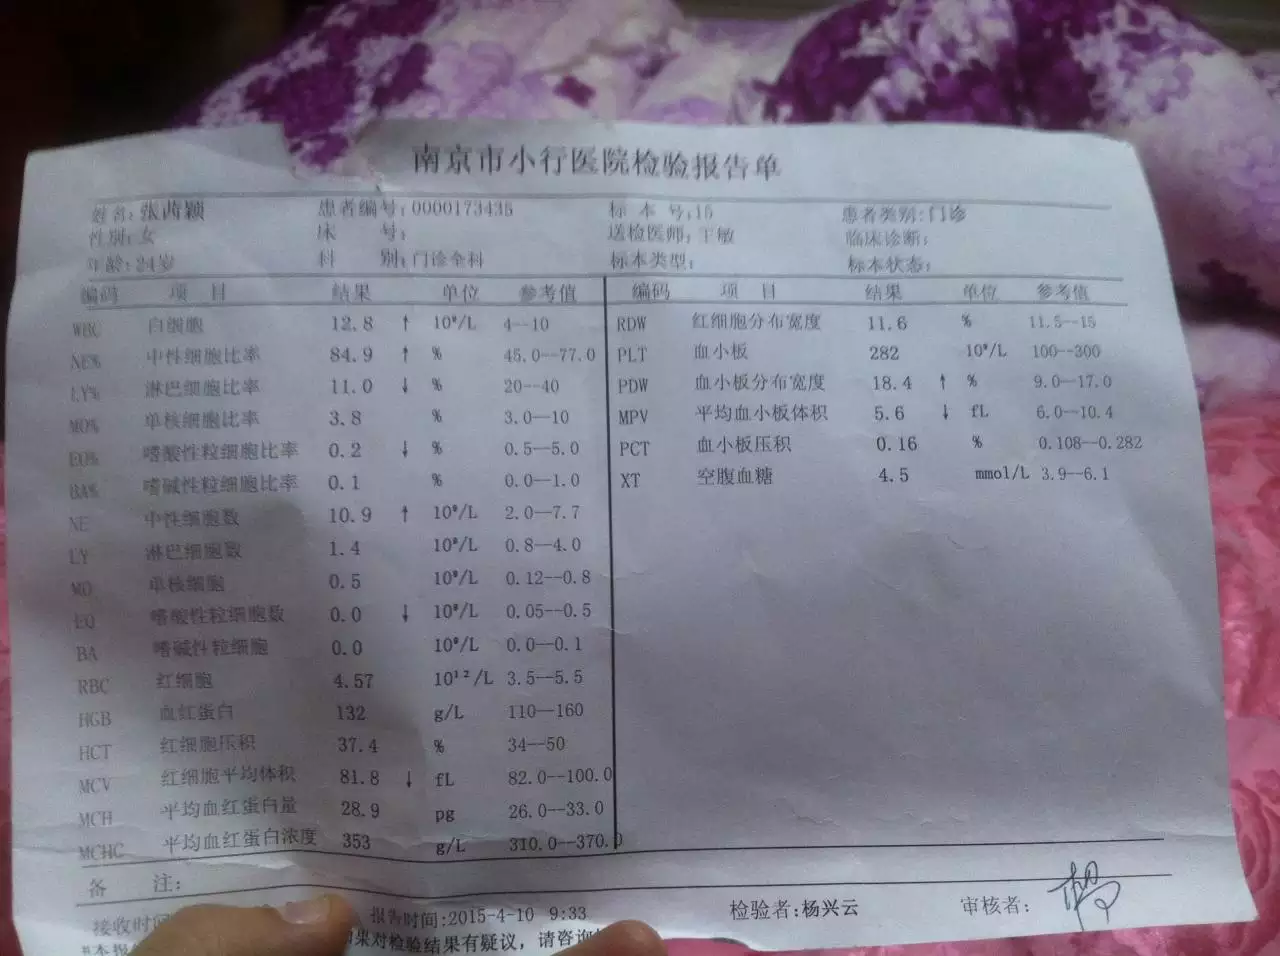 南京市小行医院检验报告单
姓名:张茜颖 患者编号:0000173435 标 本 号:15 患者类别:门诊
性别:女 床 号: 送检医师:丁敏 临床诊断:
年龄:24岁 科 别:门诊全科 标本类型: 标本状态:
编码 项 目 结果 单位 参考值 编码 项 目 结果 单位 参考值
WBC 白细胞 12.8 ↑ 10⁹/L 4--10 RDW 红细胞分布宽度 11.6 % 11.5--15
NE% 中性细胞比率 84.9 ↑ % 45.0--77.0 PLT 血小板 282 10⁹/L 100--300
LY% 淋巴细胞比率 11.0 ↓ % 20--40 PDW 血小板分布宽度 18.4 ↑ % 9.0--17.0
MO% 单核细胞比率 3.8 % 3.0--10 MPV 平均血小板体积 5.6 ↓ fL 6.0--10.4
EO% 嗜酸性粒细胞比率 0.2 ↓ % 0.5--5.0 PCT 血小板压积 0.16 % 0.108--0.282
BA% 嗜碱性粒细胞比率 0.1 % 0.0--1.0 XT 空腹血糖 4.5 mmol/L 3.9--6.1
NE 中性细胞数 10.9 ↑ 10⁹/L 2.0--7.7
LY 淋巴细胞数 1.4 10⁹/L 0.8--4.0
MO 单核细胞 0.5 10⁹/L 0.12--0.8
EO 嗜酸性粒细胞数 0.0 ↓ 10⁹/L 0.05--0.5
BA 嗜碱性粒细胞 0.0 10⁹/L 0.0--0.1
RBC 红细胞 4.57 10¹²/L 3.5--5.5
HGB 血红蛋白 132 g/L 110--160
HCT 红细胞压积 37.4 % 34--50
MCV 红细胞平均体积 81.8 ↓ fL 82.0--100.0
MCH 平均血红蛋白量 28.9 pg 26.0--33.0
MCHC 平均血红蛋白浓度 353 g/L 310.0--370.0
备 注:
接收时间 报告时间:2015-4-10 9:33 检验者:杨兴云 审核者:
果对检验结果有疑议，请咨询